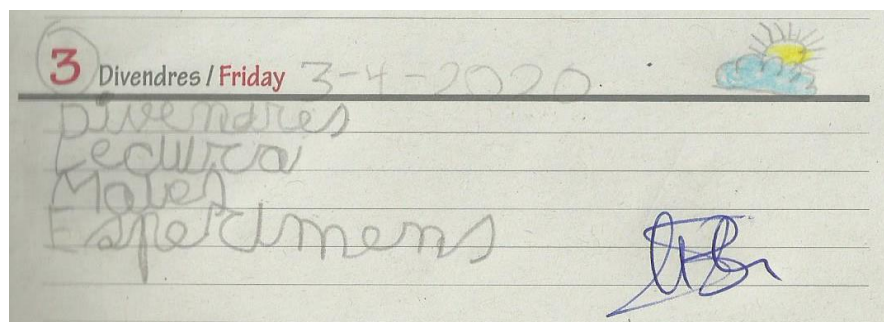 3 Divendres / Friday 3-4-2020.
Divendres
Lectura
Mates
Esperimens